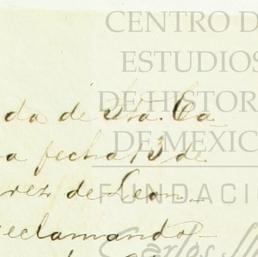 CENTRO D
ESTUDIOS
DE HISTOR
DE MEXIC
FUNDACI
da de Sra. Ca
a fecha 13 de
rez de Leon
reclamando